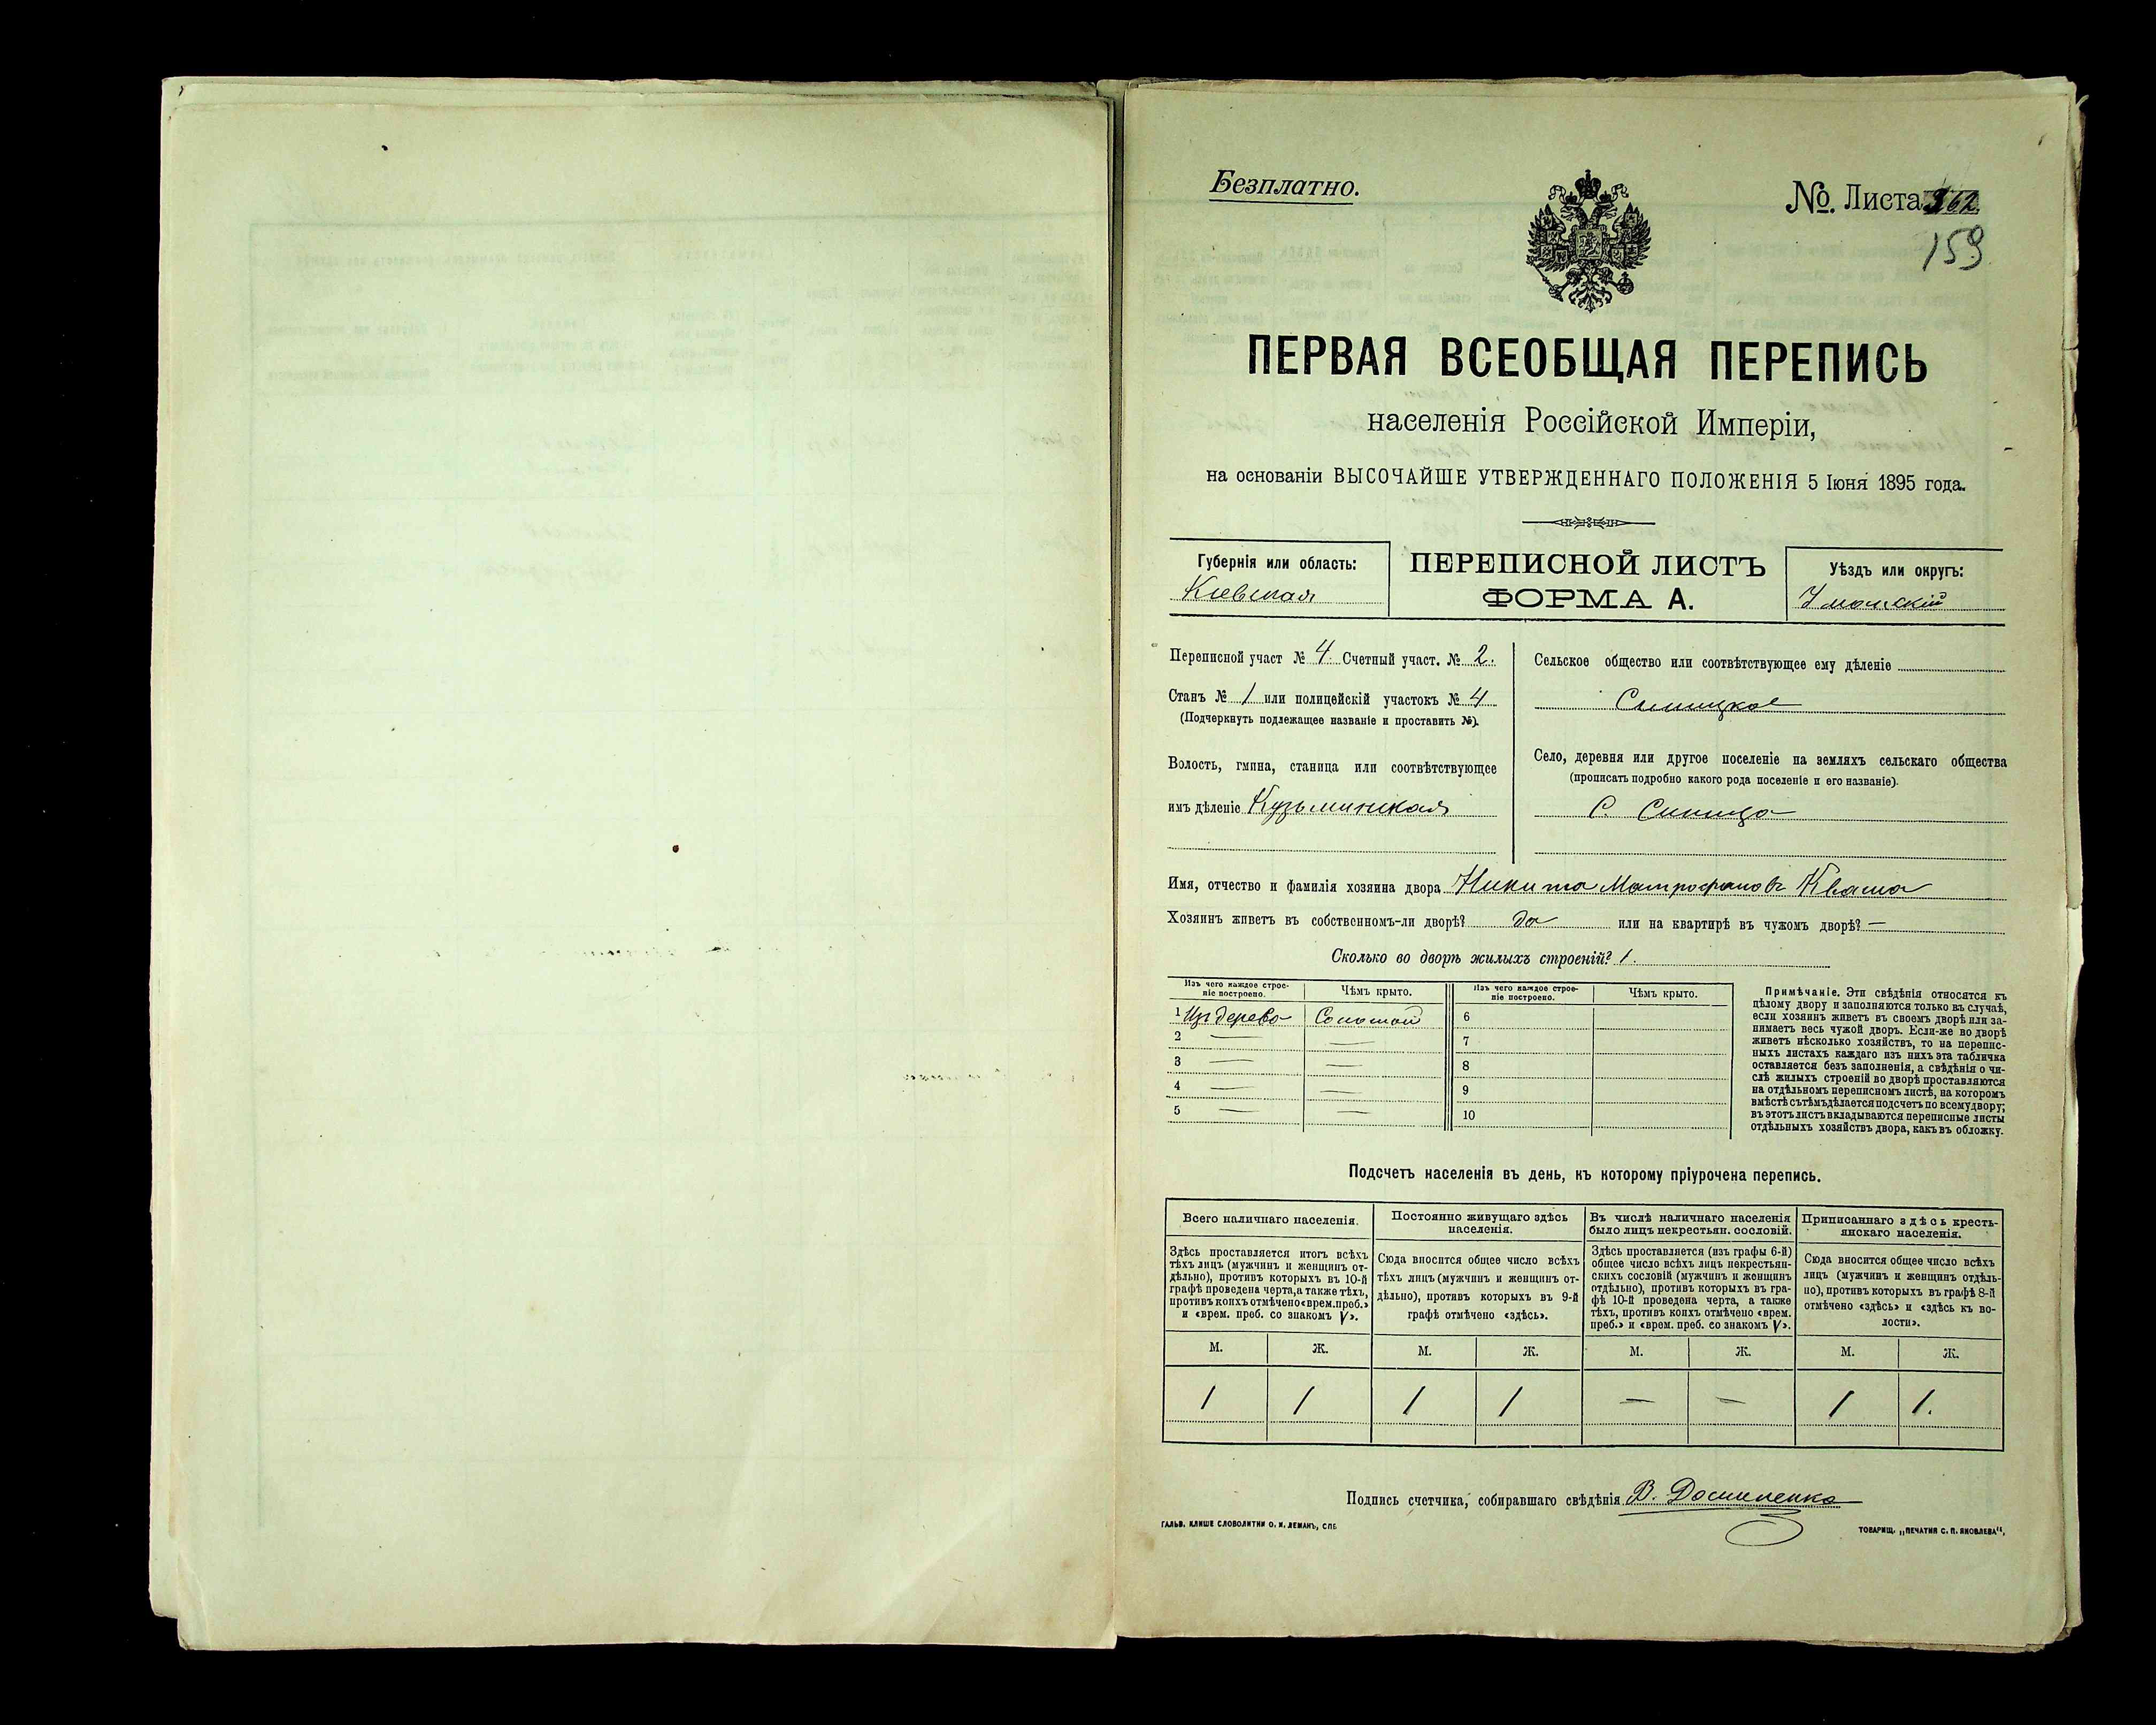 Безплатно.
№. Листа 162
159
ПЕРВАЯ ВСЕОБЩАЯ ПЕРЕПИСЬ
населенія Россійской Имперіи,
на основаніи ВЫСОЧАЙШЕ УТВЕРЖДЕННАГО ПОЛОЖЕНІЯ 5 Іюня 1895 года.
Губернія или область:
Кіевская
ПЕРЕПИСНОЙ ЛИСТЪ
ФОРМА А.
Уѣздъ или округъ:
Уманскій
Переписной участ № 4. Счетный участ. № 2.
Станъ № 1 или полицейскій участокъ № 4
(Подчеркнуть подлежащее названіе и проставить №).
Волость, гмина, станица или соотвѣтствующее
имъ дѣленіе Кузьминская
Сельское общество или соотвѣтствующее ему дѣленіе
Синицкое
Село, деревня или другое поселеніе на земляхъ сельскаго общества
(прописать подробно какого рода поселеніе и его названіе).
С. Синица
Имя, отчество и фамилія хозяина двора Никита Митрофановъ Кваша
Хозяинъ живетъ въ собственномъ-ли дворѣ? да или на квартирѣ въ чужомъ дворѣ? —
Сколько во дворѣ жилыхъ строеній? 1.
Изъ чего каждое строе-
ніе построено.
Чѣмъ крыто.
Изъ чего каждое строе-
ніе построено.
Чѣмъ крыто.
1 Изъ дерева Соломой 6
2 — — 7
3 — — 8
4 — — 9
5 — — 10
Примѣчаніе. Эти свѣдѣнія относятся къ
цѣлому двору и заполняются только въ случаѣ,
если хозяинъ живетъ въ своемъ дворѣ или за-
нимаетъ весь чужой дворъ. Если-же во дворѣ
живетъ нѣсколько хозяйствъ, то на перепис-
ныхъ листахъ каждаго изъ нихъ эта табличка
оставляется безъ заполненія, а свѣдѣнія о чи-
слѣ жилыхъ строеній во дворѣ проставляются
на отдѣльномъ переписномъ листѣ, на которомъ
вмѣстѣ съ тѣмъ дѣлается подсчетъ по всему двору;
въ этотъ листъ вкладываются переписные листы
отдѣльныхъ хозяйствъ двора, какъ въ обложку.
Подсчетъ населенія въ день, къ которому пріурочена перепись.
Всего наличнаго населенія.
Здѣсь проставляется итогъ всѣхъ
тѣхъ лицъ (мужчинъ и женщинъ от-
дѣльно), противъ которыхъ въ 10-й
графѣ проведена черта, а также тѣхъ,
противъ коихъ отмѣчено «врем. преб.»
и «врем. преб. со знакомъ V».
Постоянно живущаго здѣсь
населенія.
Сюда вносится общее число всѣхъ
тѣхъ лицъ (мужчинъ и женщинъ от-
дѣльно), противъ которыхъ въ 9-й
графѣ отмѣчено «здѣсь».
Въ числѣ наличнаго населенія
было лицъ некрестьян. сословій.
Здѣсь проставляется (изъ графы 6-й)
общее число всѣхъ лицъ некрестьян-
скихъ сословій (мужчинъ и женщинъ
отдѣльно), противъ которыхъ въ гра-
фѣ 10-й проведена черта, а также
тѣхъ, противъ коихъ отмѣчено «врем.
преб.» и «врем. преб. со знакомъ V».
Приписаннаго здѣсь кресть-
янскаго населенія.
Сюда вносится общее число всѣхъ
лицъ (мужчинъ и женщинъ отдѣль-
но), противъ которыхъ въ графѣ 8-й
отмѣчено «здѣсь» и «здѣсь къ во-
лости».
М. Ж. М. Ж. М. Ж. М. Ж.
1 1 1 1 — — 1 1.
Подпись счетчика, собиравшаго свѣдѣнія В.
ГАЛЬВ. КЛИШЕ СЛОВОЛИТНИ О. И. ЛЕМАНЪ, СПБ
ТОВАРИЩ. „ПЕЧАТНЯ С. П. ЯКОВЛЕВА“,